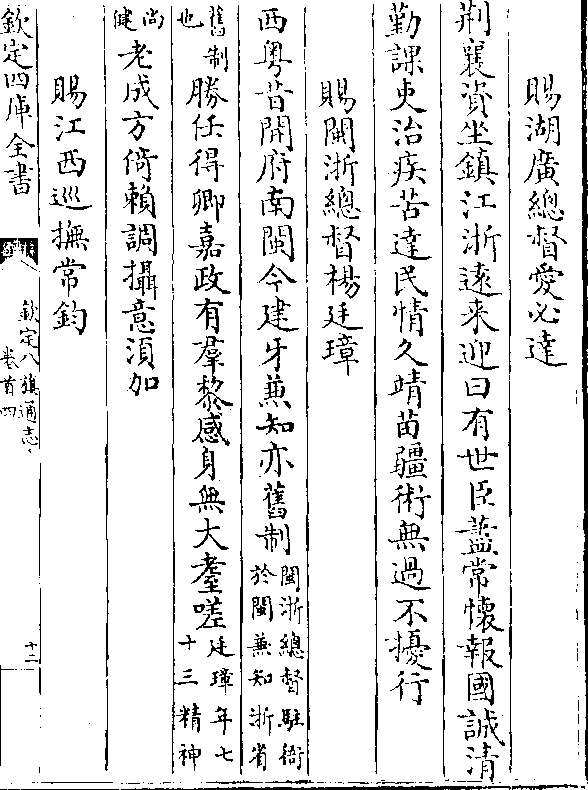 賜湖廣總督愛必達
荆襄資坐鎮江浙遠来迎曰有世臣藎常懷報國誠清
勤課吏治疾苦達民情久靖苗疆術無過不擾行
賜閩浙總督楊廷璋
西粤昔開府南閩今建牙兼知亦舊制閩浙總督駐衙於閩兼知浙省
舊制也勝任得卿嘉政有羣黎感身無大耋嗟廷璋年七十三精神
尚健老成方倚賴調攝意湏加
賜江西巡撫常鈞
欽定四庫全書
欽定八旗通志
卷首四
十二